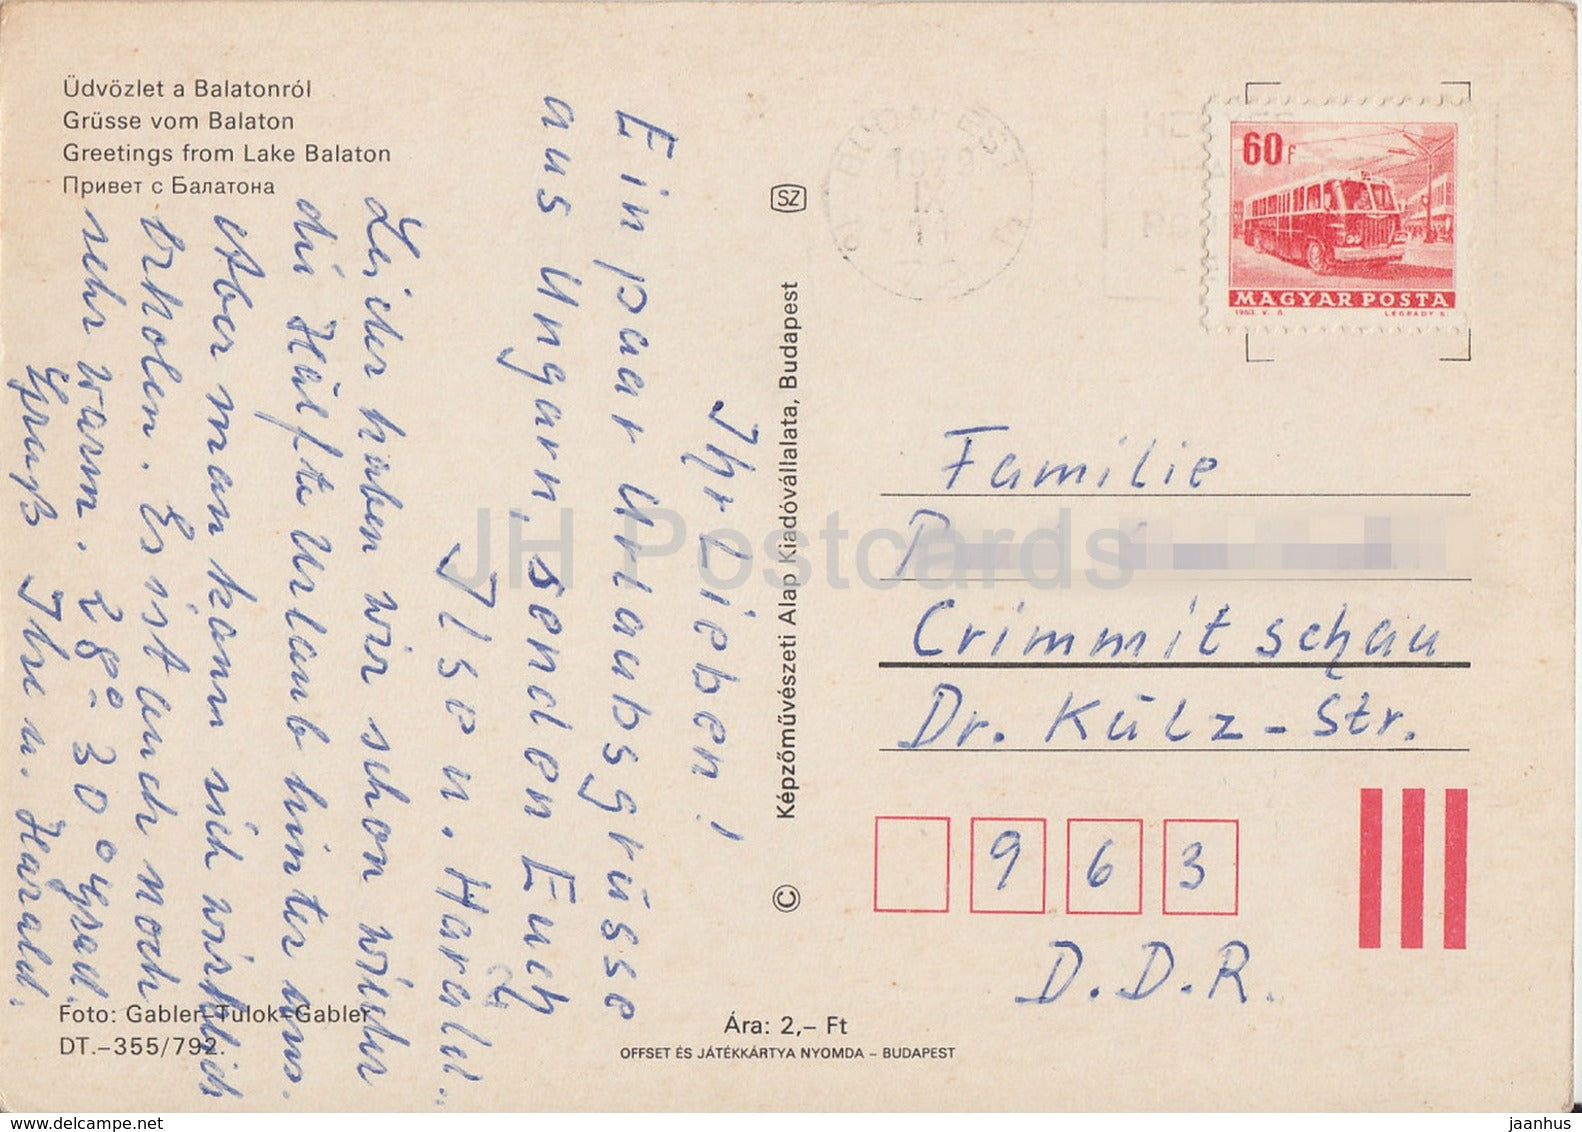 Üdvözlet a Balatonról
Grüsse vom Balaton
Greetings from Lake Balaton
Привет с Балатона
Ihr Lieben!
Ein paar Urlaubsgrüsse
aus Ungarn, senden Euch
Ilse u. Harald.
Leider haben wir schon wieder
die Hälfte Urlaub hinter uns.
Aber man kann sich wirklich
erholen. Es ist auch noch
sehr warm. 28°-30° grad.
Gruß Ilse u. Harald.
Foto: Gabler-Tulok-Gabler
DT.-355/792.
SZ
© Képzőművészeti Alap Kiadóvállalata, Budapest
Ára: 2,– Ft
OFFSET ÉS JÁTÉKKÁRTYA NYOMDA – BUDAPEST
60f
MAGYAR POSTA
1963. V. S.
LÉGRÁDY S.
Familie
P
Crimmitschau
Dr. Külz-Str.
963
D.D.R.
JH Postcards
www.delcampe.net
jaanhus